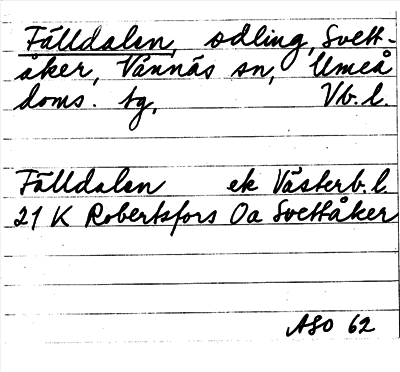 Fälldalen, odling, Svett-
åker, Vännäs sn, Umeå
doms. tg, Vb. l.
Fälldalen ek Västerb. l
21 K Robertsfors Oa Svettåker
ASO 62